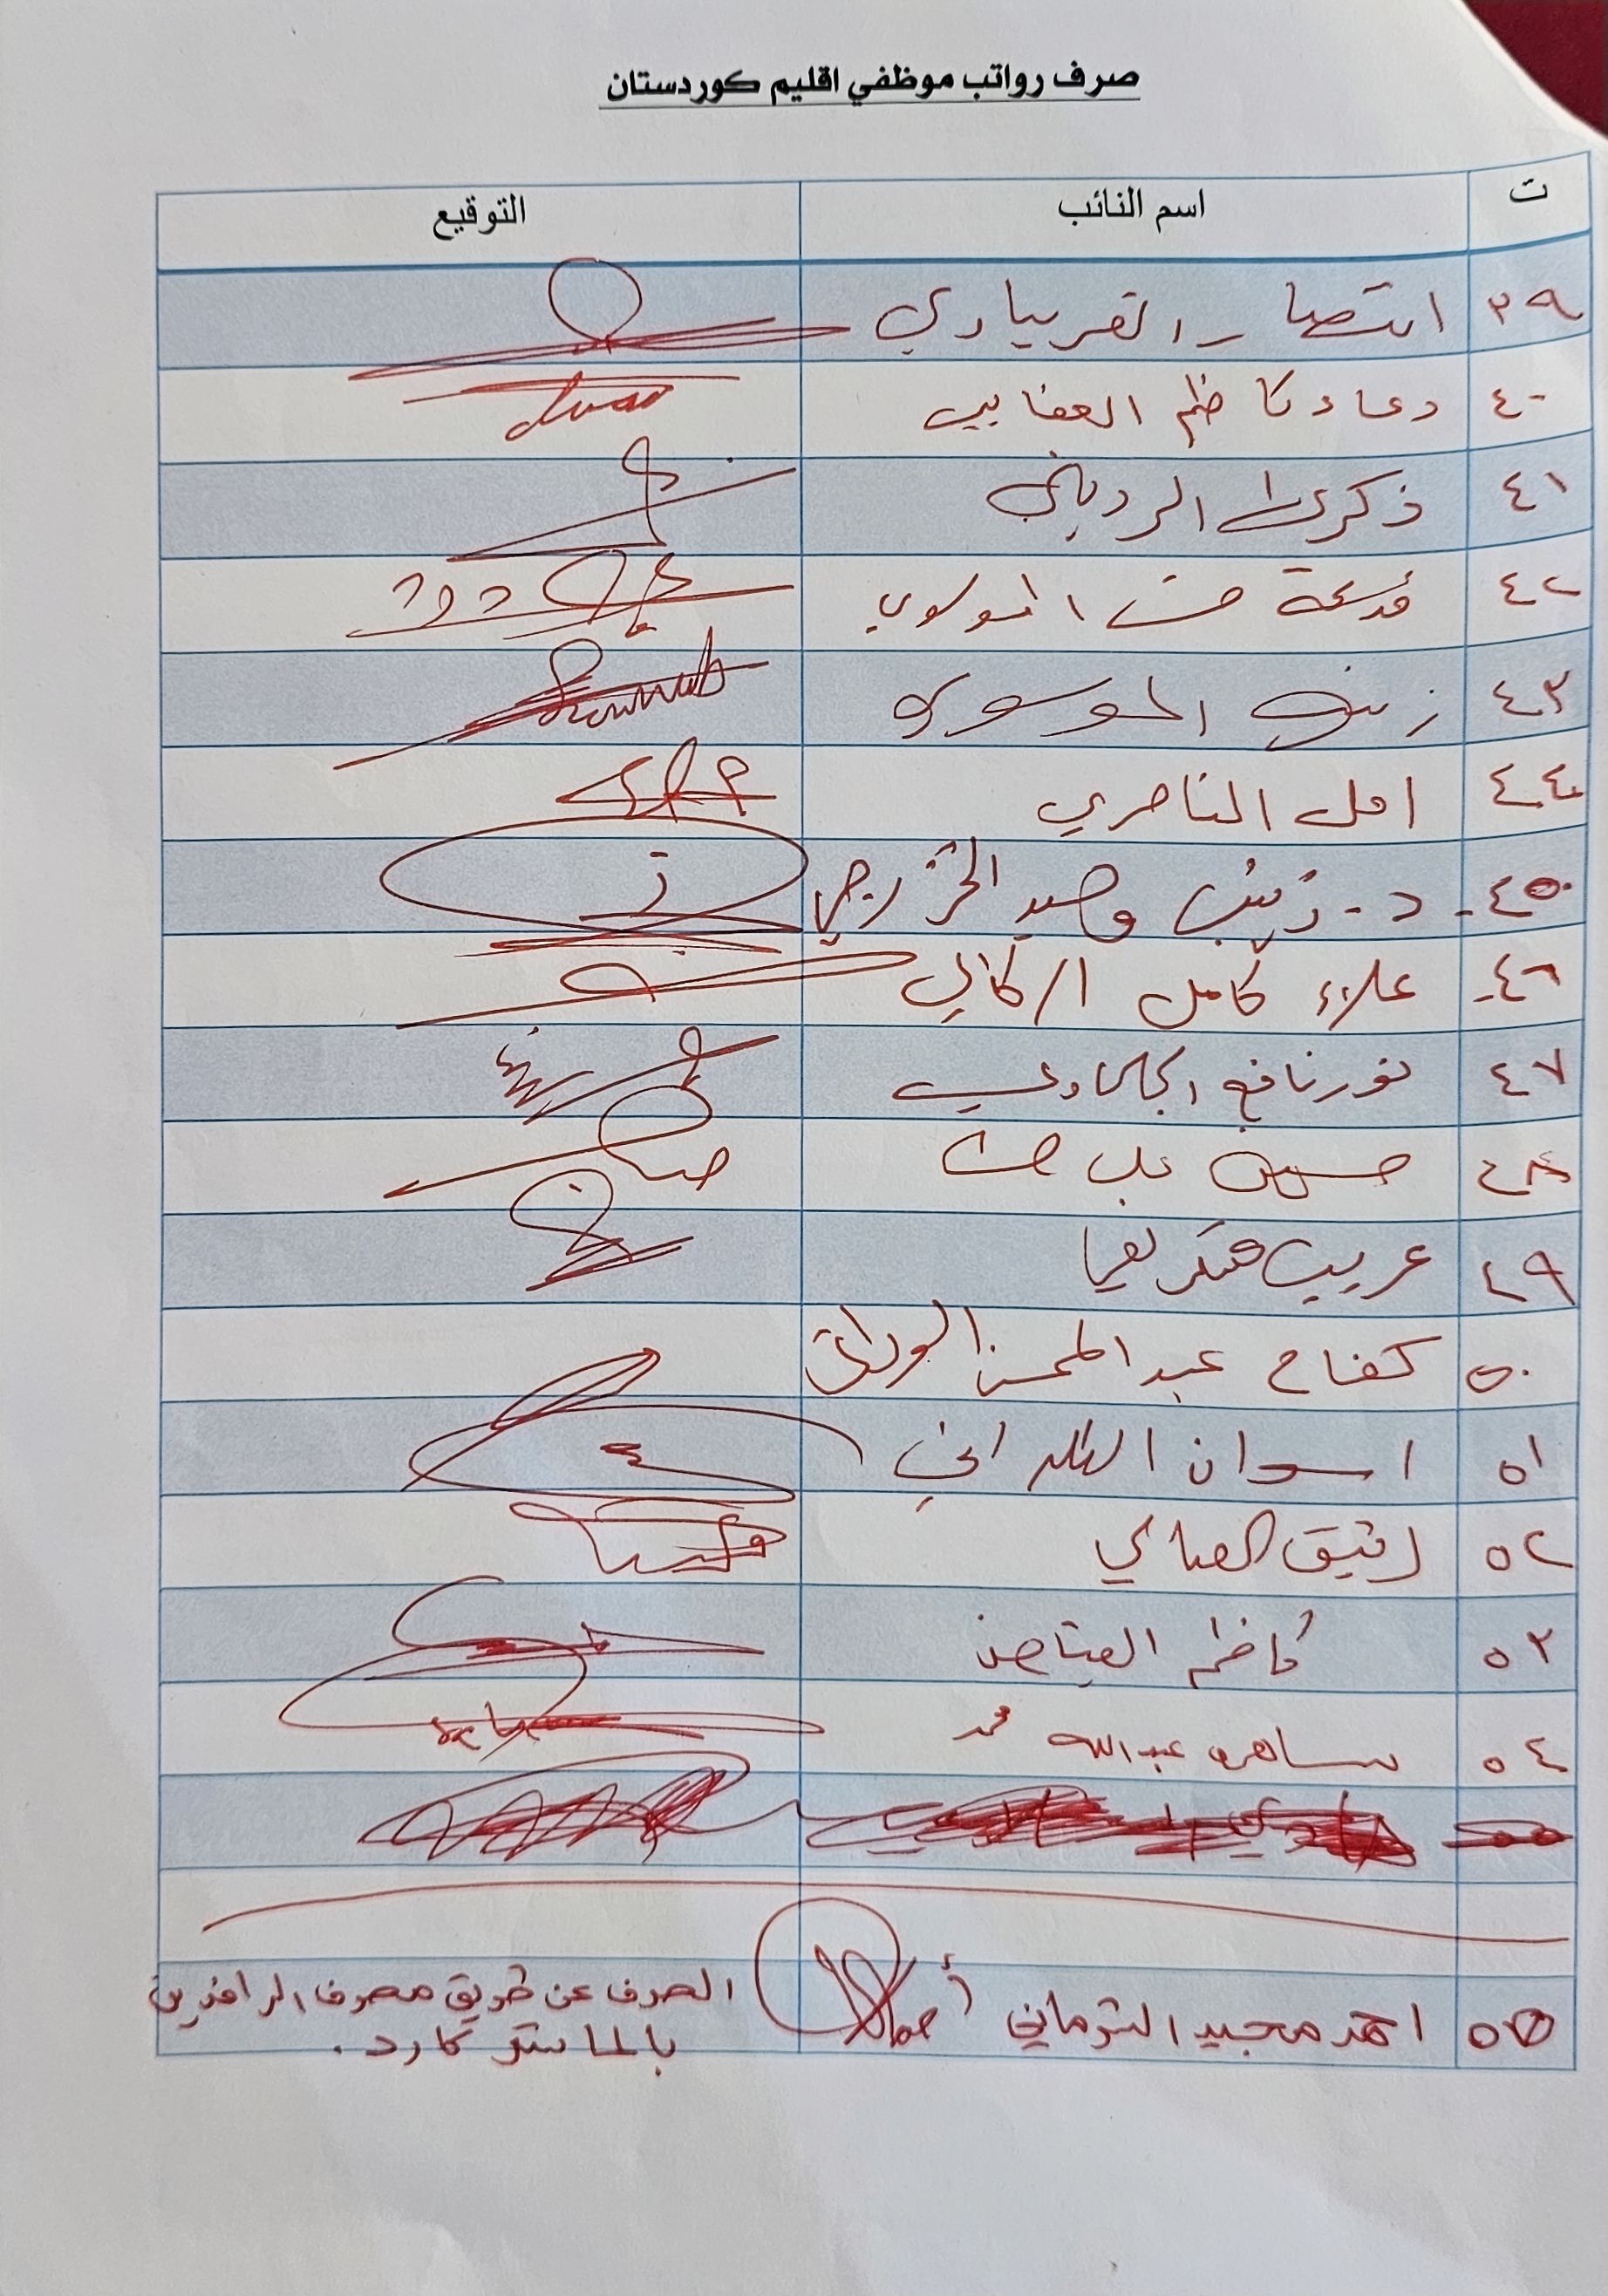 صرف رواتب موظفي اقليم كوردستان
ت اسم النائب التوقيع
٣٩ انتصار الغريباوي
٤٠ دعاء كاظم العقابي
٤١ ذكرى الرديني
٤٢ حسن الموسوي
٤٣ زينب الموسوي
٤٤ امل الناصري
٤٥ د. زينب وحيد الخزرجي
٤٦ علاء كامل الركابي
٤٧ نور نافع الجليحاوي
٤٨ حسين علي حسن
٤٩
٥٠ كفاح عبد المحسن
٥١ اسوان الكلداني
٥٢ رفيق الصالحي
٥٣ كاظم
٥٤ ساهره عبدالله محمد
٥٥ احمد مجيد
الصرف عن طريق مصرف الرافدين
بالماستر كارد.